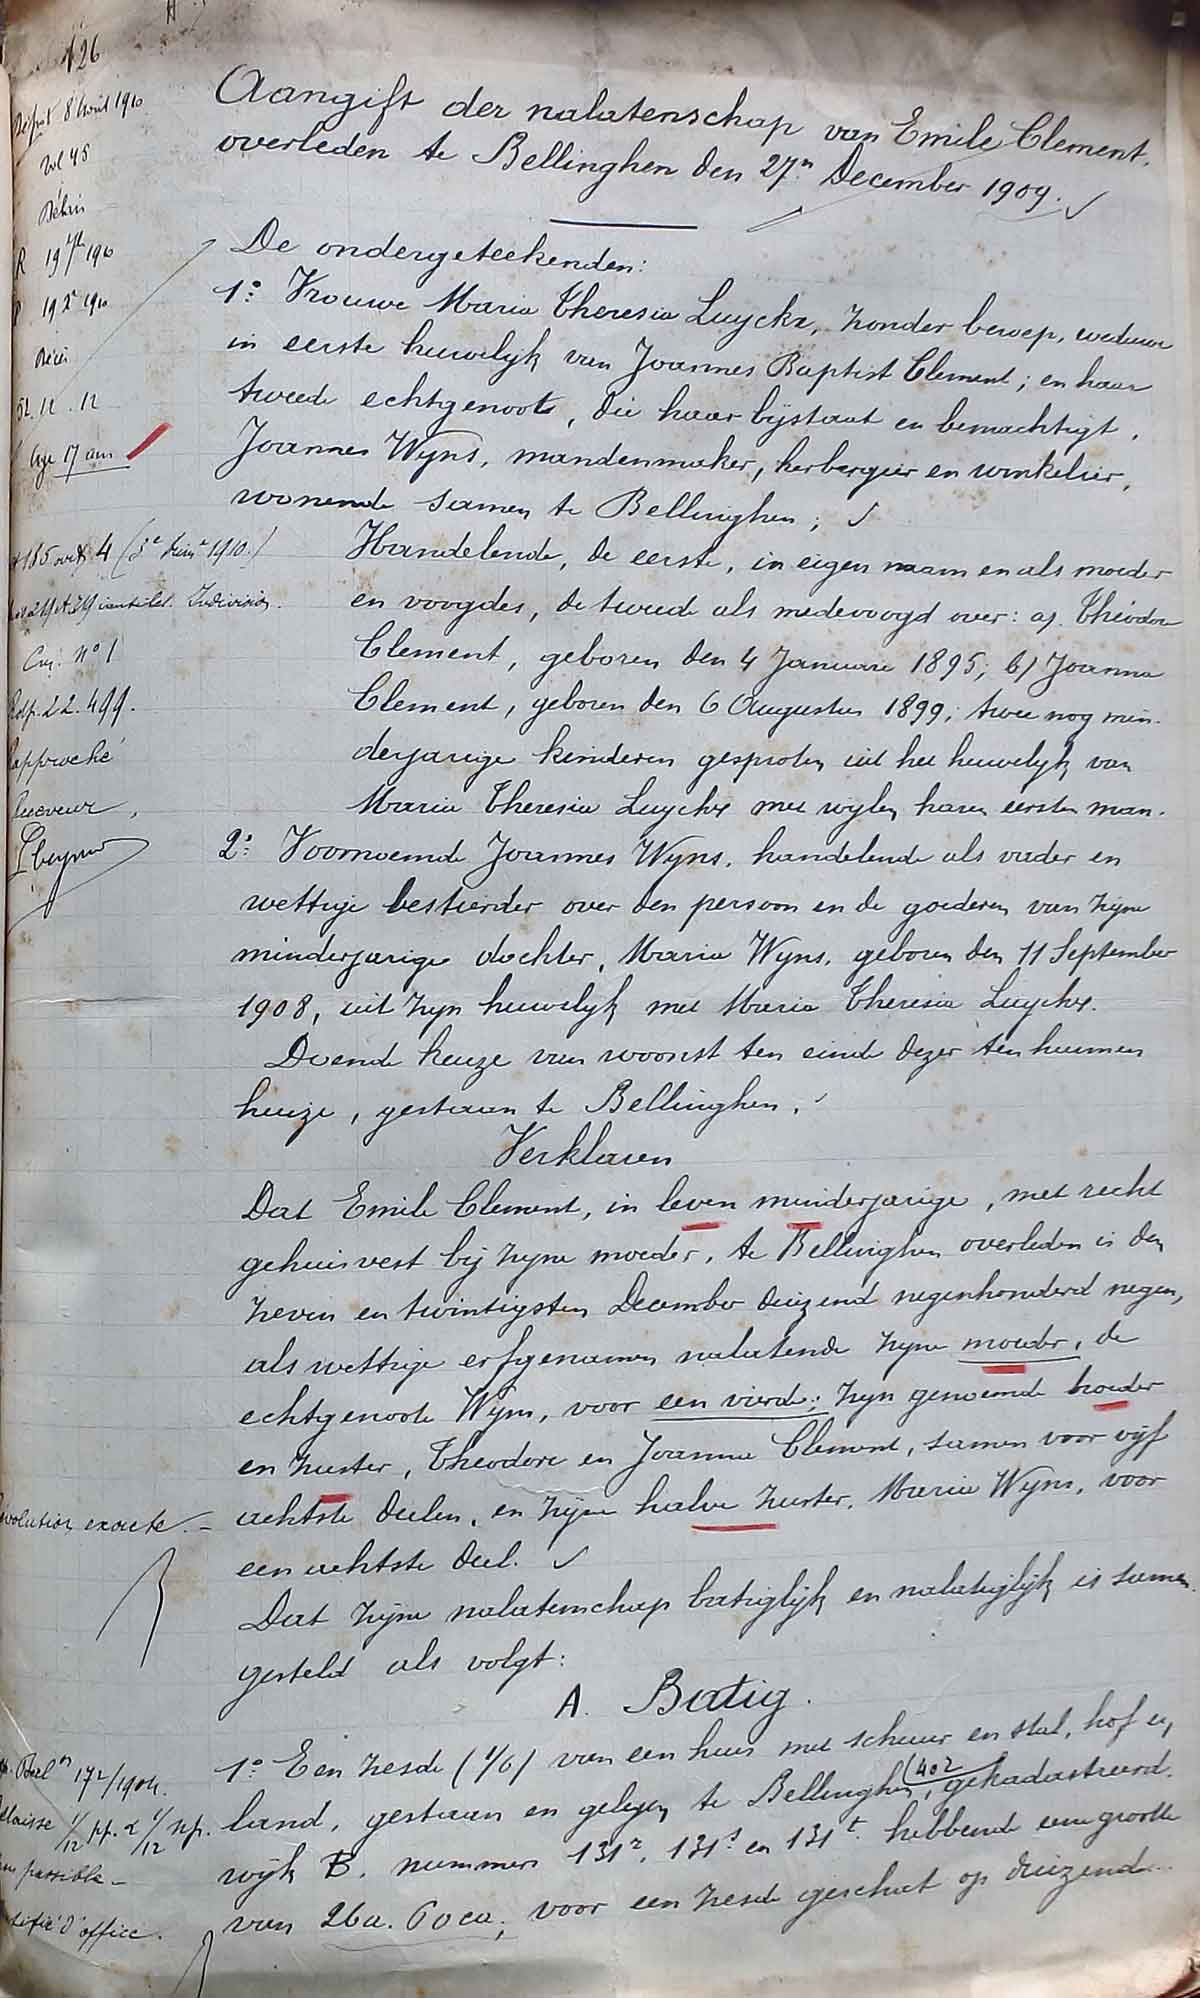 126
Aangift der nalatenschap van Emile Clement,
overleden te Bellinghen den 27n December 1909.
8 Août 1910
Vol 45
De ondergeteekenden:
1º Vrouwe Maria Theresia Luyckx, zonder beroep, weduwe
in eerste huwelijk van Joannes Baptist Clement; en haar
tweede echtgenoote, die haar bijstaat en bemachtigt,
Joannes Wyns, mandenmaker, herbergier en winkelier,
wonende samen te Bellinghen;
Age 17 ans
Handelende, de eerste, in eigen naam en als moeder
en voogdes, de tweede als medevoogd over: a) Théodore
Clement, geboren den 4 Januari 1895; b) Joanna
Clement, geboren den 6 Augustus 1899; twee nog min-
derjarige kinderen gesproten uit het huwelijk van
Maria Theresia Luyckx met wijlen haren eersten man.
Indivision.
nº 1
22.499.
2º Voornoemde Joannes Wyns, handelende als vader en
wettige bestierder over den persoon en de goederen van zijne
minderjarige dochter, Maria Wyns, geboren den 11 September
1908, uit zijn huwelijk met Maria Theresia Luyckx.
Doende keuze van woonst ten einde dezer ten hunnen
huize, gestaan te Bellinghen,
Verklaren
Dat Emile Clement, in leven minderjarige, met recht
gehuisvest bij zijne moeder, te Bellinghen overleden is den
zeven en twintigsten December duizend negenhonderd negen,
als wettige erfgenamen nalatende zijne moeder, de
echtgenoote Wyns, voor een vierde; zijn genoemde broeder
en zuster, Theodore en Joanna Clement, samen voor vijf
achtste deelen, en zijne halve zuster, Maria Wyns, voor
een achtste deel.
Dévolution exacte.-
Dat zijne nalatenschap batiglijk en nalatiglijk is samen-
gesteld als volgt:
A. Batig.
1º Een zesde (1/6) van een huis met schuur en stal, hof en
land, gestaan en gelegen te Bellinghen, (402 gekadastreerd
wijk B. nummers 131r, 131s en 131t. hebbende eene grootte
van 26a. 60ca, voor een zesde geschat op duizend
172/1904.
1/12 pp. & 1/12 np.
passible -
d'office.